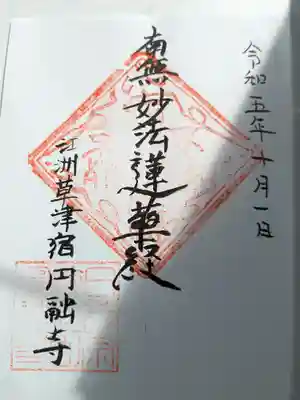 令和五年十月一日
南無妙法蓮華経
江洲草津宿 円融寺